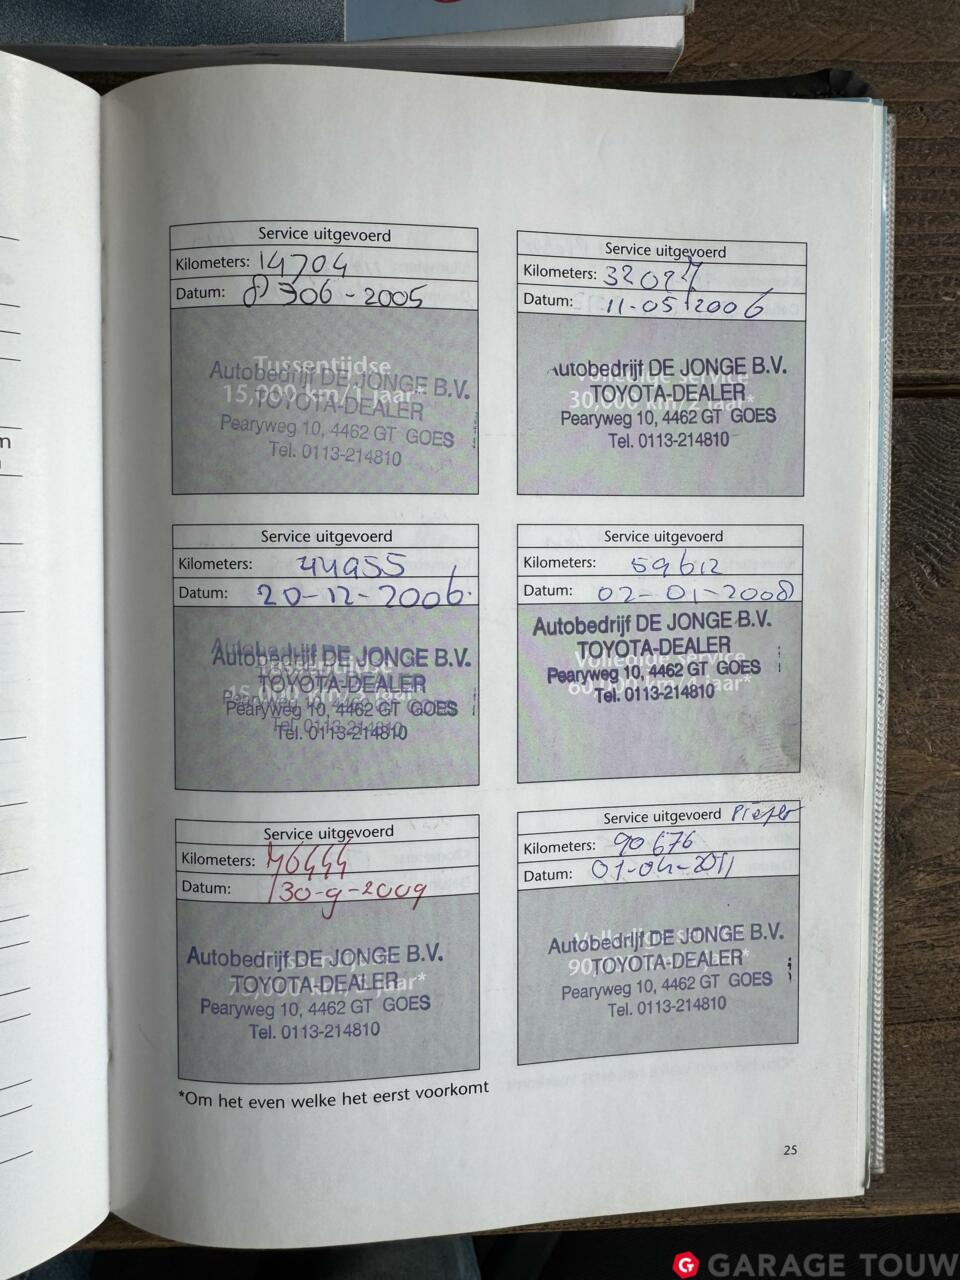 Service uitgevoerd
Kilometers: 14704
Datum: 8 306-2005
Tussentijdse
15,000 km/1 jaar*
Autobedrijf DE JONGE B.V.
TOYOTA-DEALER
Pearyweg 10, 4462 GT GOES
Tel. 0113-214810
Service uitgevoerd
Kilometers: 32027
Datum: 11-05-2006
Volledige service
30,000 km/2 jaar*
Autobedrijf DE JONGE B.V.
TOYOTA-DEALER
Pearyweg 10, 4462 GT GOES
Tel. 0113-214810
Service uitgevoerd
Kilometers: 44955
Datum: 20-12-2006
Autobedrijf DE JONGE B.V.
TOYOTA-DEALER
Pearyweg 10, 4462 GT GOES
Tel. 0113-214810
Service uitgevoerd
Kilometers: 59612
Datum: 02-01-2008
Volledige service
60,000 km/4 jaar*
Autobedrijf DE JONGE B.V.
TOYOTA-DEALER
Pearyweg 10, 4462 GT GOES
Tel. 0113-214810
Service uitgevoerd
Kilometers: 76444
Datum: 30-9-2009
Autobedrijf DE JONGE B.V.
TOYOTA-DEALER
Pearyweg 10, 4462 GT GOES
Tel. 0113-214810
Service uitgevoerd
Kilometers: 90676
Datum: 01-04-2011
Autobedrijf DE JONGE B.V.
TOYOTA-DEALER
Pearyweg 10, 4462 GT GOES
Tel. 0113-214810
*Om het even welke het eerst voorkomt
25
GARAGE TOUW